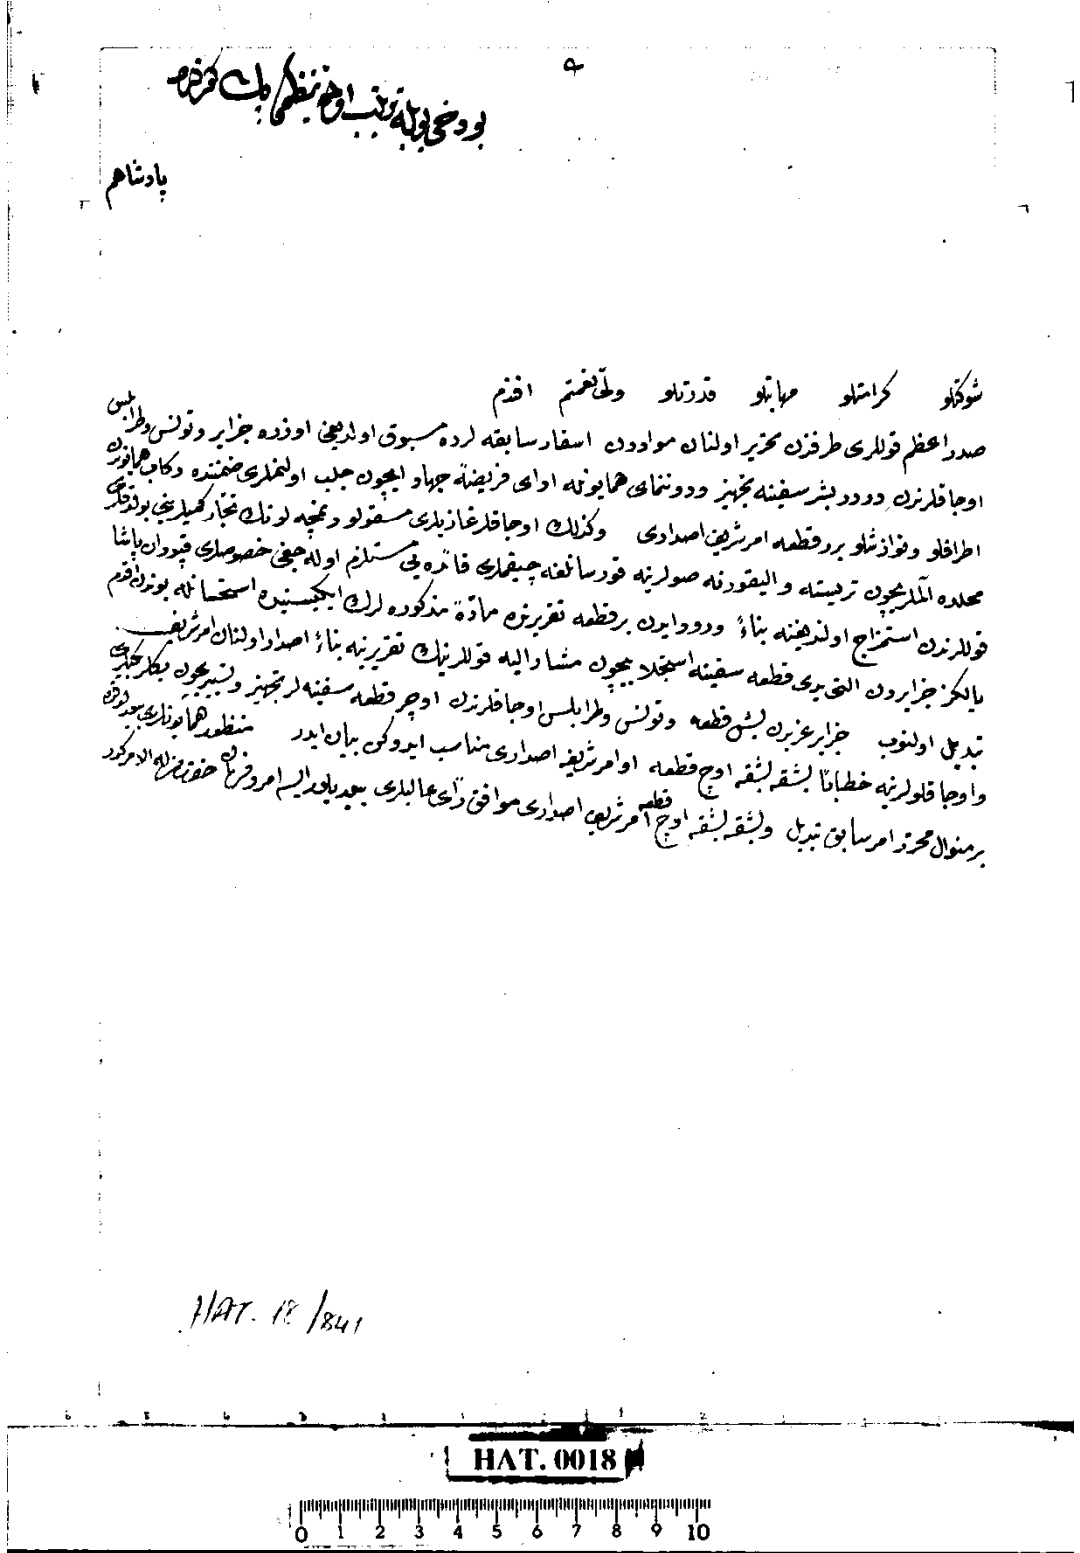 بو دخی بویله ترتیب اوامر تنظیم
پادشاهم
شوکتلو کرامتلو مهابتلو قدرتلو ولی نعمتم افندم
صدر اعظم قوللری طرفندن تحریر اولنان موادن اسفار سابقه لرده مسبوق اولدیغی اوزره جزایر وتونس وطرابلس
اوجاقلرندن بشر سفینه تجهیز ودوننمای همایونه ادای فریضهٔ جهاد ایچون جلب اولنملری ضمننده رکاب همایوندن
اطرافلو ونوازشلو برر قطعه امر شریف اصداری وکذلك اوجاقلر غازیلری مسقولو ونمچه لونك تجار کمیلرینی بولدقلری
محلده آلملریچون تربیسته والیقورنه صولرینه قورسانلغه چیقملری فائده یی مستلزم اوله جغی خصوصلری قپودان پاشا
قوللرندن استمزاج اولندیغنه بناءً ورود ایدن بر قطعه تقریرنده مادهٔ مذکوره لرك ایکیسنیده استحسان بوندن اقدم
یالکز جزایردن التی یدی قطعه سفینه استجلابیچون مشار الیه قوللرینك تقریرینه بناءً اصدار اولنان امر شریف
تبدیل اولنوب جزایر غربدن بش قطعه وتونس وطرابلس اوجاقلرندن اوچر قطعه سفینه لر تجهیز وتسییریچون بکلربکیلری
واوجاقلولرینه خطاباً بشقه بشقه اوچ قطعه اوامر شریفه اصداری مناسب ایدوکن بیان ایدر منظور همایونلری بیورلدقده
بر منوال محرر امر سابق تبدیل وبشقه بشقه اوچ قطعه امر شریف اصداری موافق رأی عالیلری بیوریلور ایسه امر وفرمان حضرت من له الامرکدر
HAT. 18/841
HAT. 0018
0 1 2 3 4 5 6 7 8 9 10